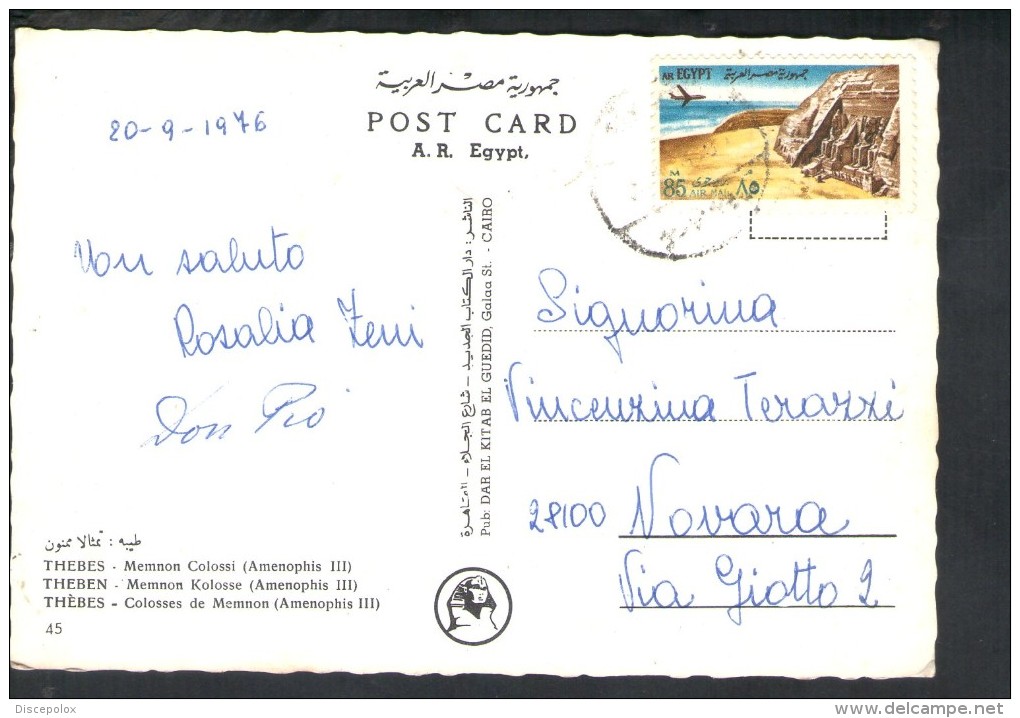 جمهورية مصر العربية
POST CARD
A. R. Egypt.
20-9-1976
AR EGYPT جمهورية مصر العربية
M
85 AIR MAIL بريد جوى ٨٥
saluto
Rosalia Zeni
Don Pio
الناشر: دار الكتاب الجديد - شارع الجلاء - القاهرة
Pub: DAR EL KITAB EL GUEDID, Galaa St. - CAIRO
Signorina
Vincenzina Terazzi
28100 Novara
Via Giotto 2
طيبه : تمثالا ممنون
THEBES - Memnon Colossi (Amenophis III)
THEBEN - Memnon Kolosse (Amenophis III)
THÈBES - Colosses de Memnon (Amenophis III)
45
Discepolox
delcampe.net